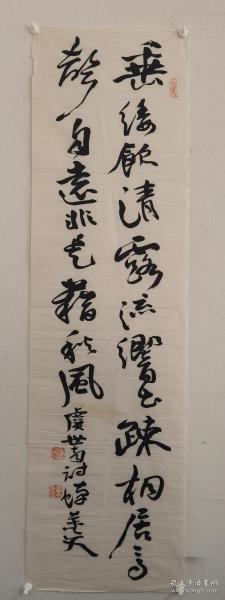 垂緌飲清露流響出疎桐居高
聲自遠非是藉秋風虞世南詩蟬
孔夫子旧书网